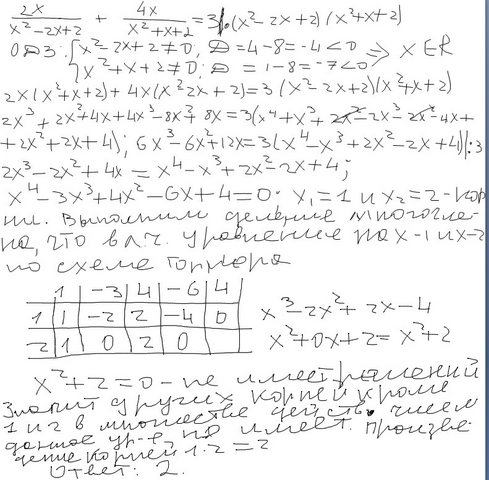 2x/(x²-2x+2) + 4x/(x²+x+2) = 3 |·(x²-2x+2)(x²+x+2)
ОДЗ: {x²-2x+2≠0; D=4-8=-4<0 => x∈R
{x²+x+2≠0; D=1-8=-7<0
2x(x²+x+2)+4x(x²-2x+2)=3(x²-2x+2)(x²+x+2)
2x³+2x²+4x+4x³-8x²+8x=3(x⁴+x³+2x²-2x³-2x²-4x+
+2x²+2x+4); 6x³-6x²+12x=3(x⁴-x³+2x²-2x+4)|:3
2x³-2x²+4x=x⁴-x³+2x²-2x+4;
x⁴-3x³+4x²-6x+4=0. x₁=1 и x₂=2-кор
ни. Выполним деление многочле-
на, что в л.ч. уравнение на x-1 и x-2
по схеме Горнера
1 | -3 | 4 | -6 | 4
1 | 1 | -2 | 2 | -4 | 0 x³-2x²+2x-4
2 | 1 | 0 | 2 | 0 x²+0x+2=x²+2
x²+2=0-не имеет решений
Значит других корней кроме
1 и 2 в множестве действ. чисел
данное ур-е не имеет. Произве-
дение корней 1·2=2
Ответ: 2.